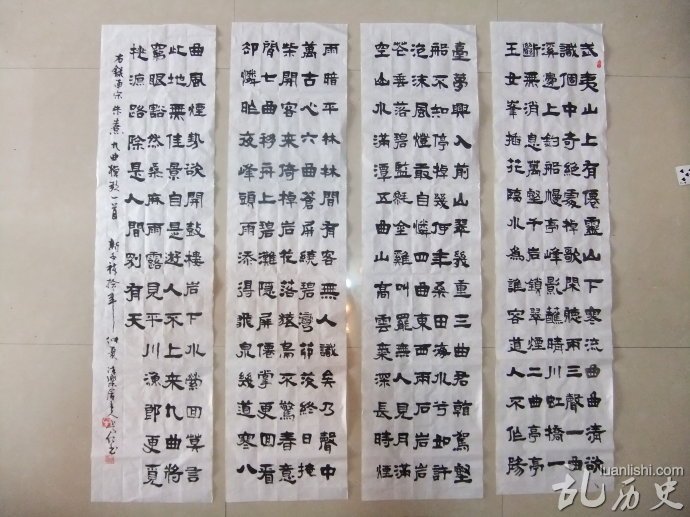 武夷山上有僊靈山下寒流曲曲清欲
識個中奇絕處棹歌閑聽兩三聲一曲
溪邊上釣船幔亭峰影蘸晴川虹橋一
斷無消息萬壑千岩鎖翠煙二曲亭亭
王女峯插花臨水為誰容道人不作陽
臺夢興入前山翠幾重三曲君看駕壑
船不知停棹幾何年桑田海水兮如許
泡沫風燈敢自憐四曲東西兩石岩岩
花垂落碧金雞叫罷無人見月滿
空山水滿潭五曲山高雲氣深長時煙
雨暗平林林間有客無人識矣乃聲中
萬古心六曲蒼屏繞碧灣茆茨終日掩
柴關客來倚棹岩花落猿鳥不驚春意
閒七曲移舟上碧灘隱屏僊掌更回看
卻憐昨夜峰頭雨添得飛泉幾道寒八
曲風煙勢欲開鼓樓岩下水縈回莫言
此地無佳景自是遊人不上來九曲將
窮眼豁然桑麻雨露見平川漁郎更覓
桃源路除是人間別有天
右錄南宋朱熹九曲棹歌一首
luanlishi.com
乱历史